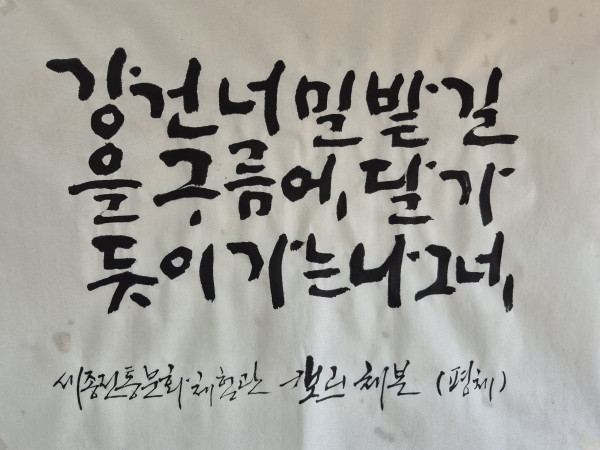 강건너 밀밭길
을 구름에 달 가
듯이 가는 나그네
세종전통문화체험관 체본 (평체)